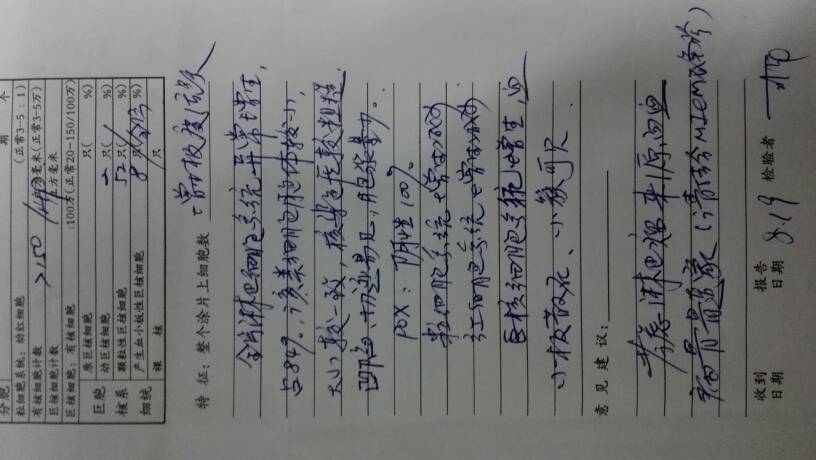 分 胞 期 个
粒细胞系统：幼红细胞 (正常3-5：1)
有核细胞计数 >150 /毫米(正常3-5万)
巨核细胞计数 立方毫米
巨核细胞：有核细胞 :100万(正常20-150/100万)
原巨核细胞 只( %)
幼巨核细胞 2只( %)
颗粒性巨核细胞 52只( %)
产生血小板性巨核细胞 8只( %)
裸 核 只
巨胞
核系
细统
特 征：整个涂片上细胞数 增生极度活跃
全片淋巴细胞系统异常增生，
占84%，该类细胞胞体较小，
大小较一致，核染色质较粗糙，
凹陷、切迹易见，胞浆量少。
POX：阴性100%
粒细胞系统增生减低
红细胞系统增生减低
巨核细胞系统增生，血
小板散在、小簇可见
意 见 建 议：
考虑淋巴瘤来源血
骨髓象（请结合MICM及临床）
收到
日期
报告
日期 8.19
检验者